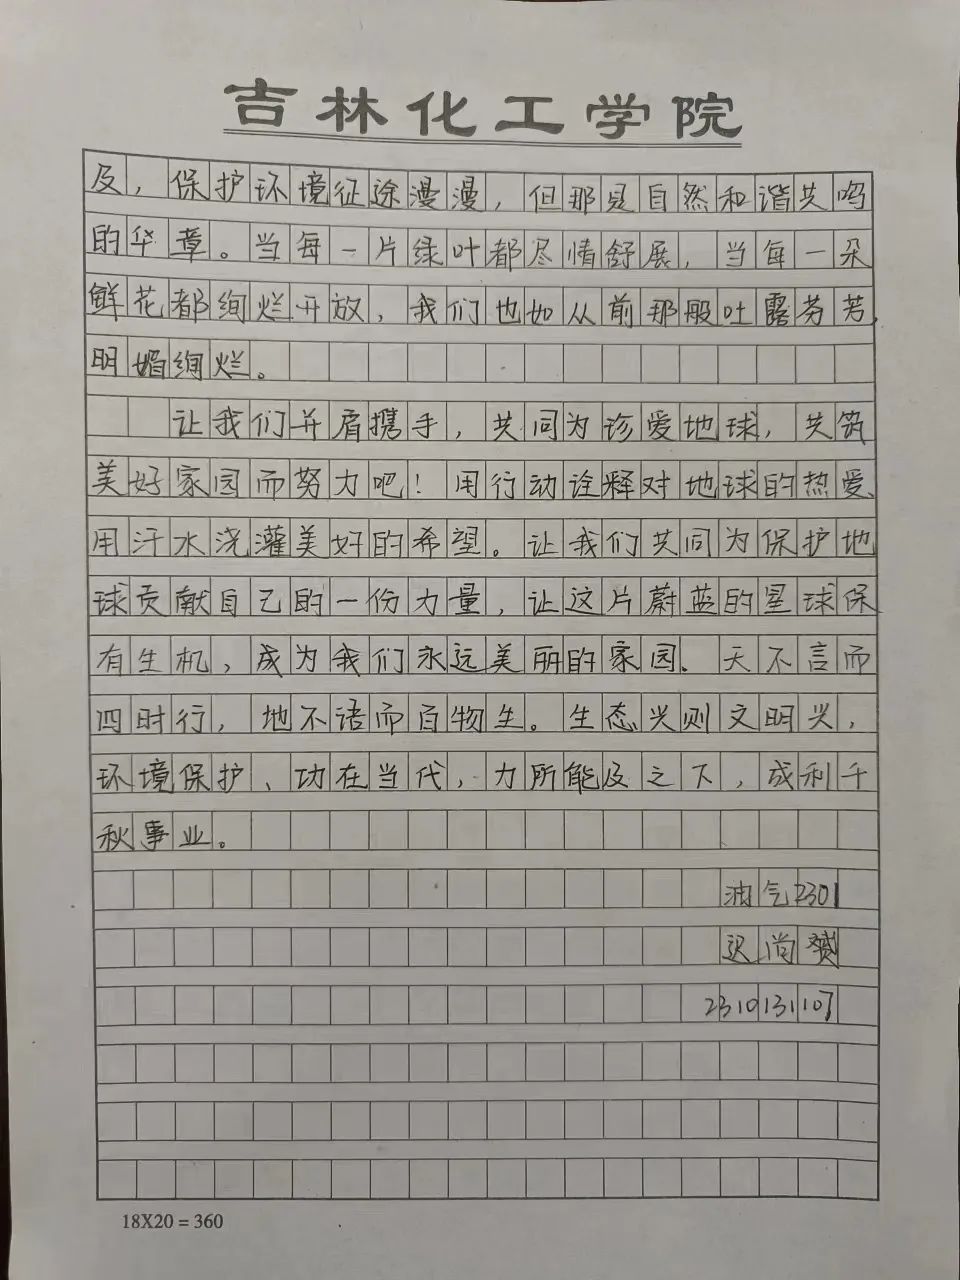 吉林化工学院
及，保护环境征途漫漫，但那是自然和谐共鸣
的华章。当每一片绿叶都尽情舒展，当每一朵
鲜花都绚烂开放，我们也如从前那般吐露芬芳，
明媚绚烂。
让我们并肩携手，共同为珍爱地球，共筑
美好家园而努力吧！用行动诠释对地球的热爱、
用汗水浇灌美好的希望。让我们共同为保护地
球贡献自己的一份力量，让这片蔚蓝的星球保
有生机，成为我们永远美丽的家园．天不言而
四时行，地不语而百物生。生态兴则文明兴，
环境保护、功在当代，力所能及之下，成利千
秋事业。
油气2301
迟尚
2310131107
18X20 = 360